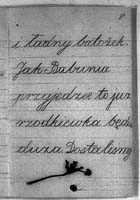 i ładny bałożek.
Jak Babunia
przyjedzie to już
rzodkiewka będzie
duża Dostaliśmy